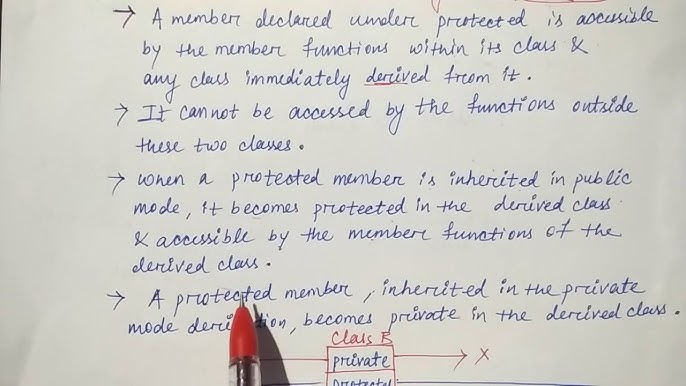 → A member declared under protected is accessible
by the member functions within its class &
any class immediately derived from it.
→ It cannot be accessed by the functions outside
these two classes.
→ when a protected member is inherited in public
mode, it becomes protected in the derived class
& accessible by the member functions of the
derived class.
→ A protected member, inherited in the private
mode derivation, becomes private in the derived class.
Class B
private → X
protected